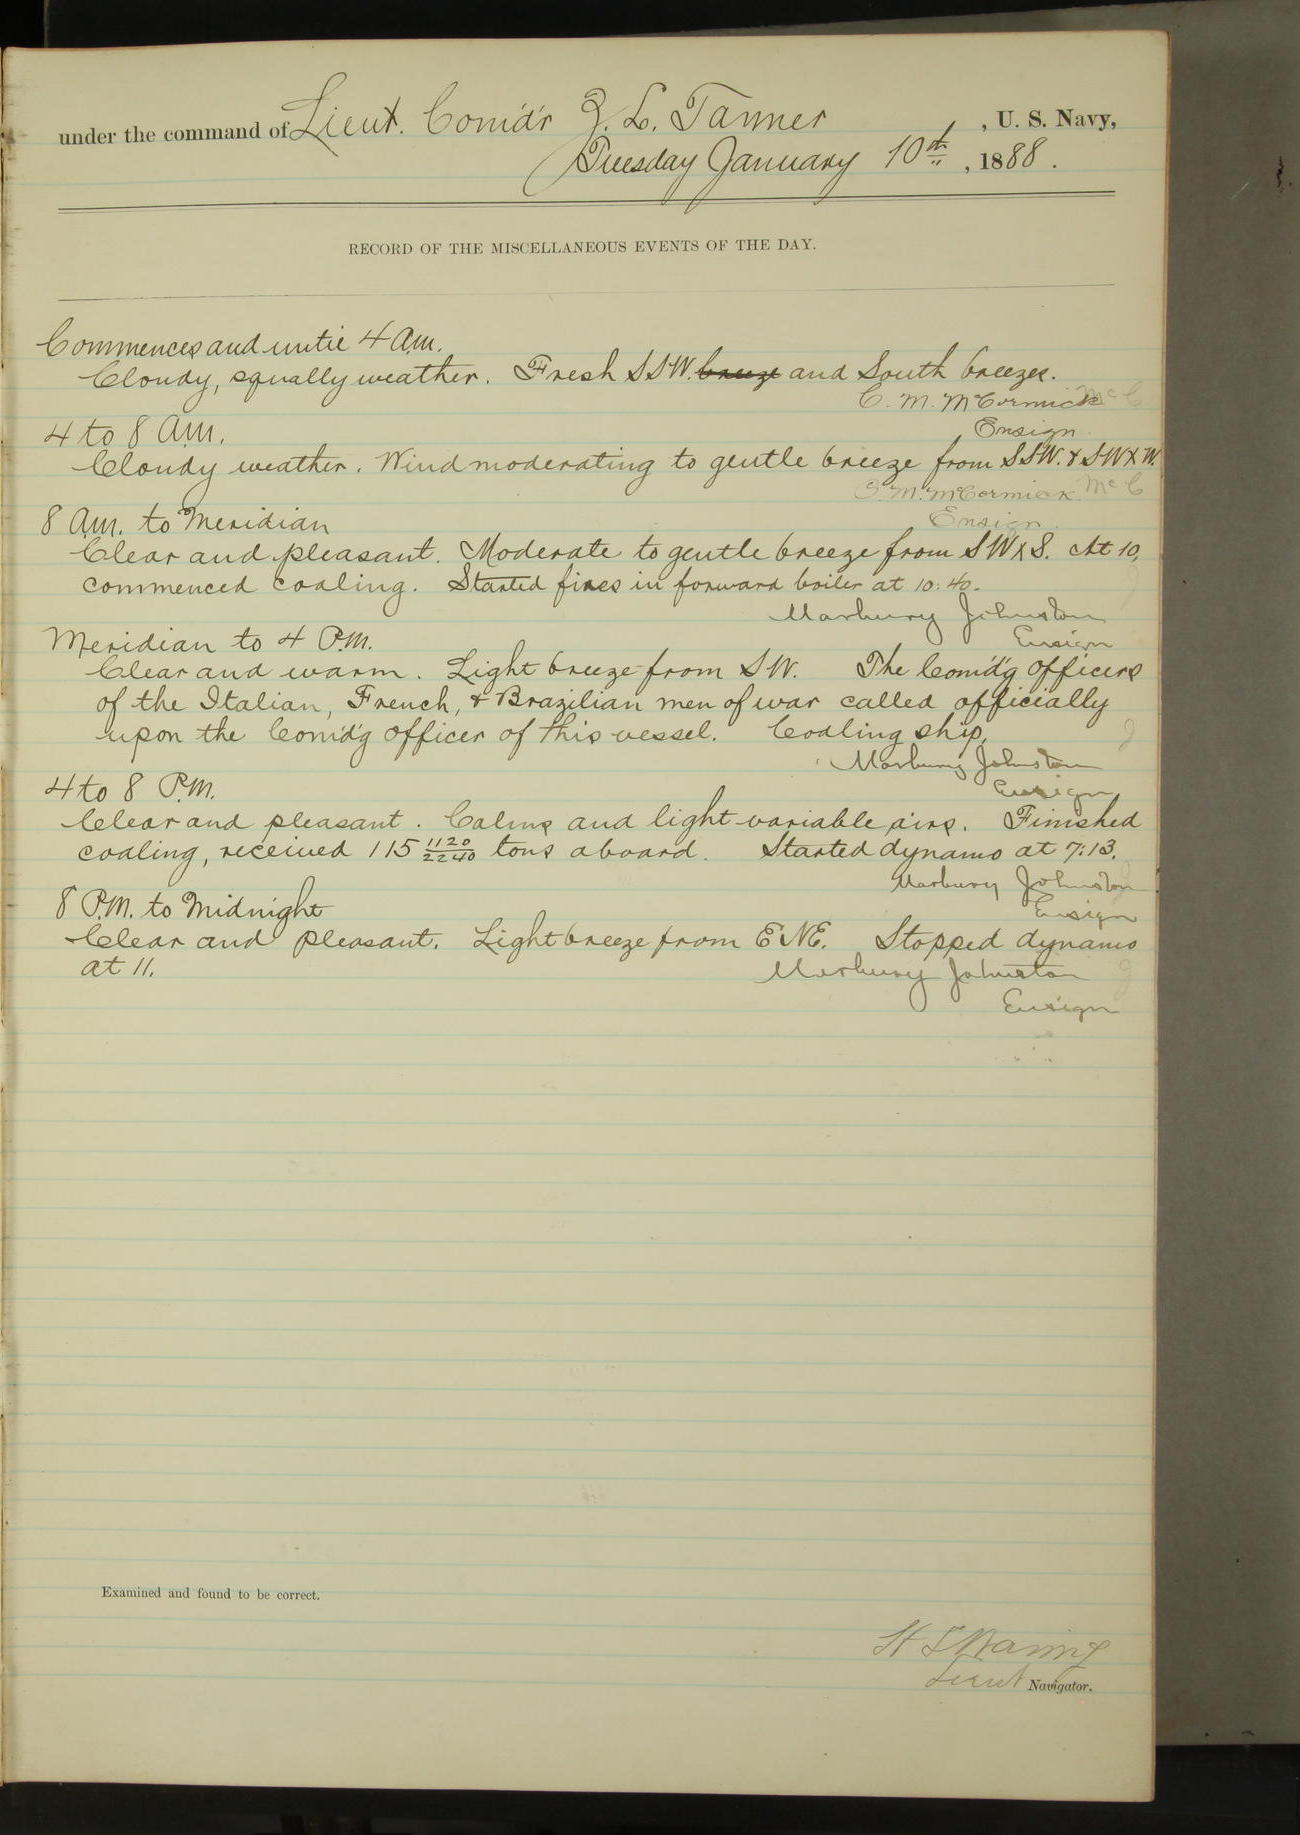 under the command of Lieut. Com'd'r Z. L. Tanner, U. S. Navy,
Tuesday January 10th, 1888.
RECORD OF THE MISCELLANEOUS EVENTS OF THE DAY.
Commences and until 4 A.M.
Cloudy, squally weather. Fresh SSW. breeze and South breezes.
C. M. McCormick McC
Ensign.
4 to 8 A.M.
Cloudy weather. Wind moderating to gentle breeze from SSW. & SWxW.
C. M. McCormick. McC
Ensign.
8 A.M. to Meridian
Clear and pleasant. Moderate to gentle breeze from SWxS. At 10,
commenced coaling. Started fires in forward boiler at 10:40.
Marbury Johnston
Ensign
Meridian to 4 P.M.
Clear and warm. Light breeze from SW. The Com'd'g Officers
of the Italian, French, & Brazilian men of war called officially
upon the Com'd'g Officer of this vessel. Coaling ship.
Marbury Johnston
Ensign
4 to 8 P.M.
Clear and pleasant. Calms and light variable airs. Finished
coaling, received 115 1120/2240 tons aboard. Started dynamo at 7:13.
Marbury Johnston
Ensign
8 P.M. to Midnight
Clear and pleasant. Light breeze from ENE. Stopped dynamo
at 11.
Marbury Johnston
Ensign
Examined and found to be correct.
H S Waring
Lieut Navigator.